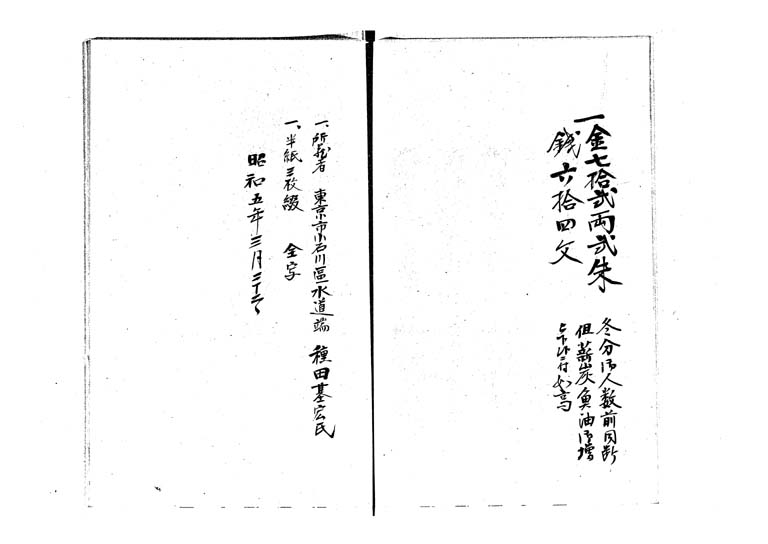 一金七拾弐両弐朱
銭六拾四文
冬分御人数前同断
但薪炭魚油御増
一、所蔵者 東京市小石川區水道端 種田基宏氏
一、半紙三枚綴 全写
昭和五年三月